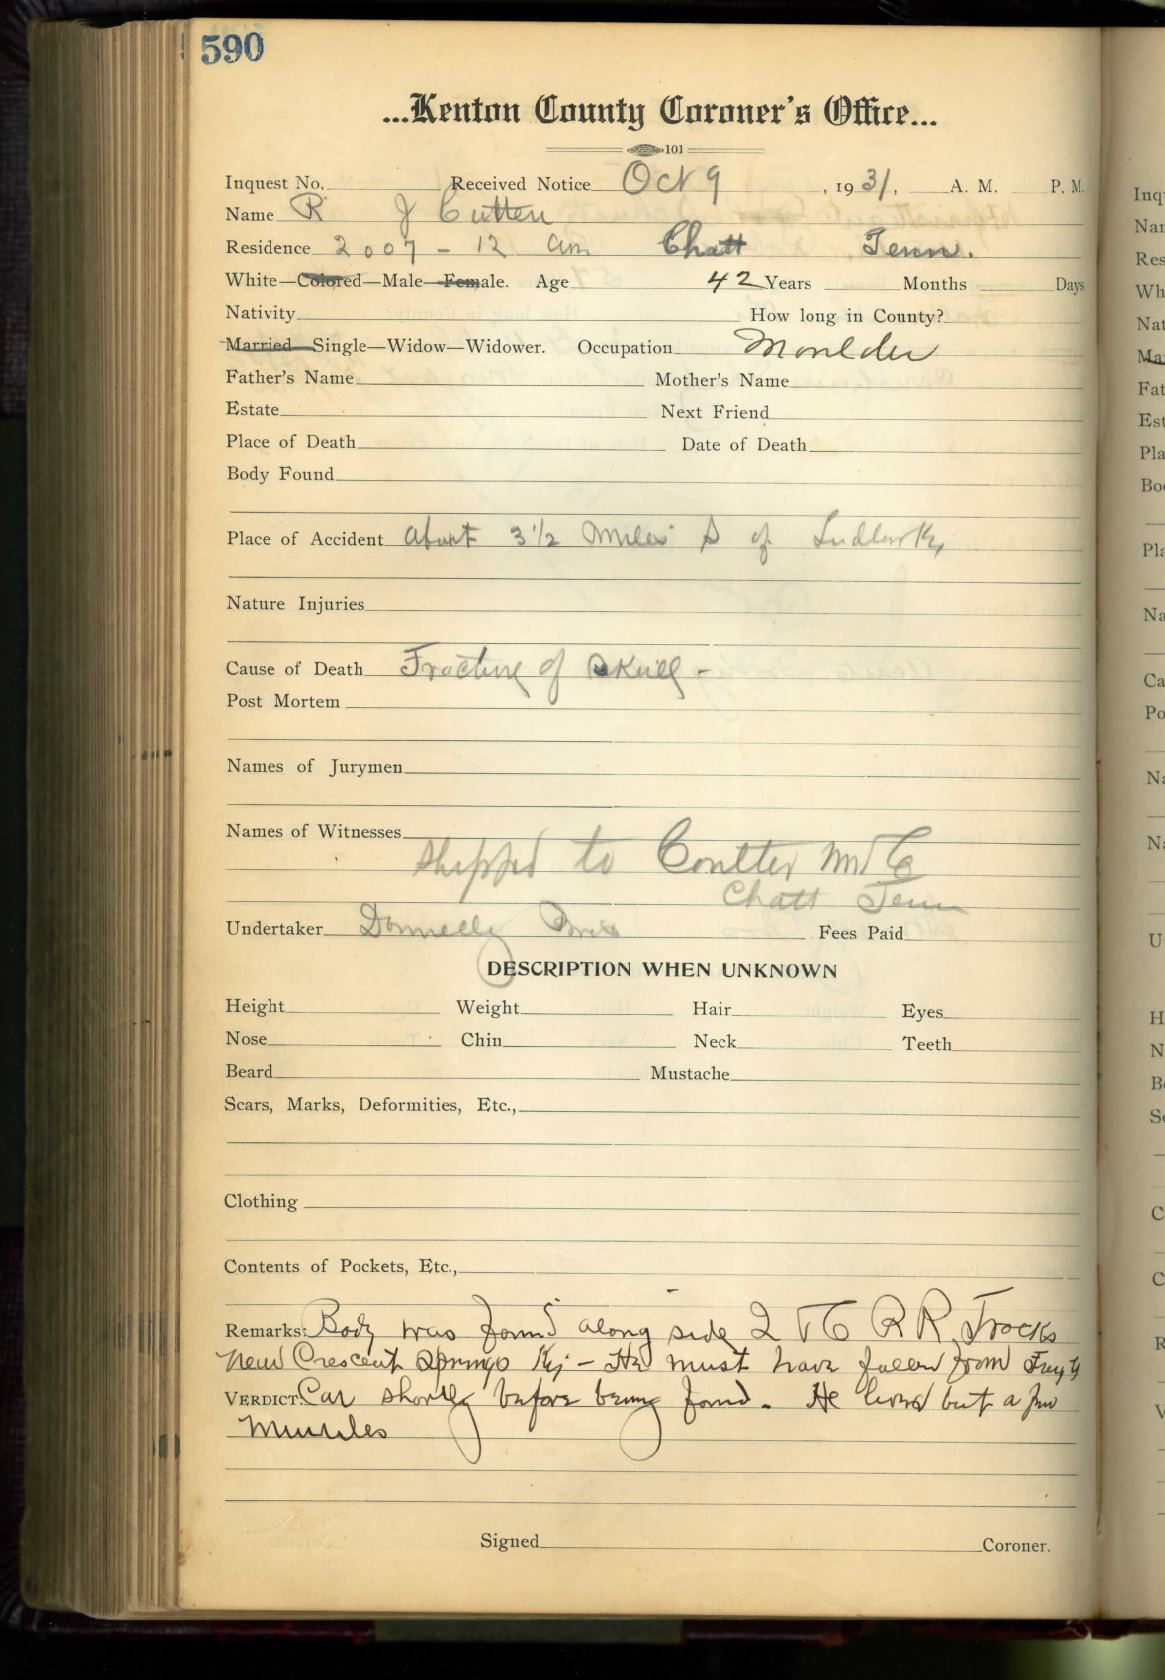 590
...Kenton County Coroner's Office...
101
Inquest No. Received Notice Oct 9, 1931, A. M. P. M.
Name R J Cutten
Residence 2007 - 12 am Chatt Tenn.
White—Colored—Male—Female. Age 42 Years Months Days
Nativity How long in County?
Married—Single—Widow—Widower. Occupation Moulder
Father's Name Mother's Name
Estate Next Friend
Place of Death Date of Death
Body Found
Place of Accident about 3 1/2 Miles S of Ludlow Ky
Nature Injuries
Cause of Death Fracture of Skull -
Post Mortem
Names of Jurymen
Names of Witnesses
Shipped to Coulter
Chatt Tenn
Undertaker Donnelly Bros Fees Paid
DESCRIPTION WHEN UNKNOWN
Height Weight Hair Eyes
Nose Chin Neck Teeth
Beard Mustache
Scars, Marks, Deformities, Etc.,
Clothing
Contents of Pockets, Etc.,
Remarks: Body was found along side Q & C R R Tracks
near Crescent Springs Ky - He must have fallen from
VERDICT: Car shortly before being found. He lived but a few
Minutes
Signed Coroner.
Inq
Nar
Res
Wh
Nat
Ma
Fat
Est
Pla
Bo
Pla
Na
Ca
Po
Na
Na
U
H
N
B
S
C
C
R
V